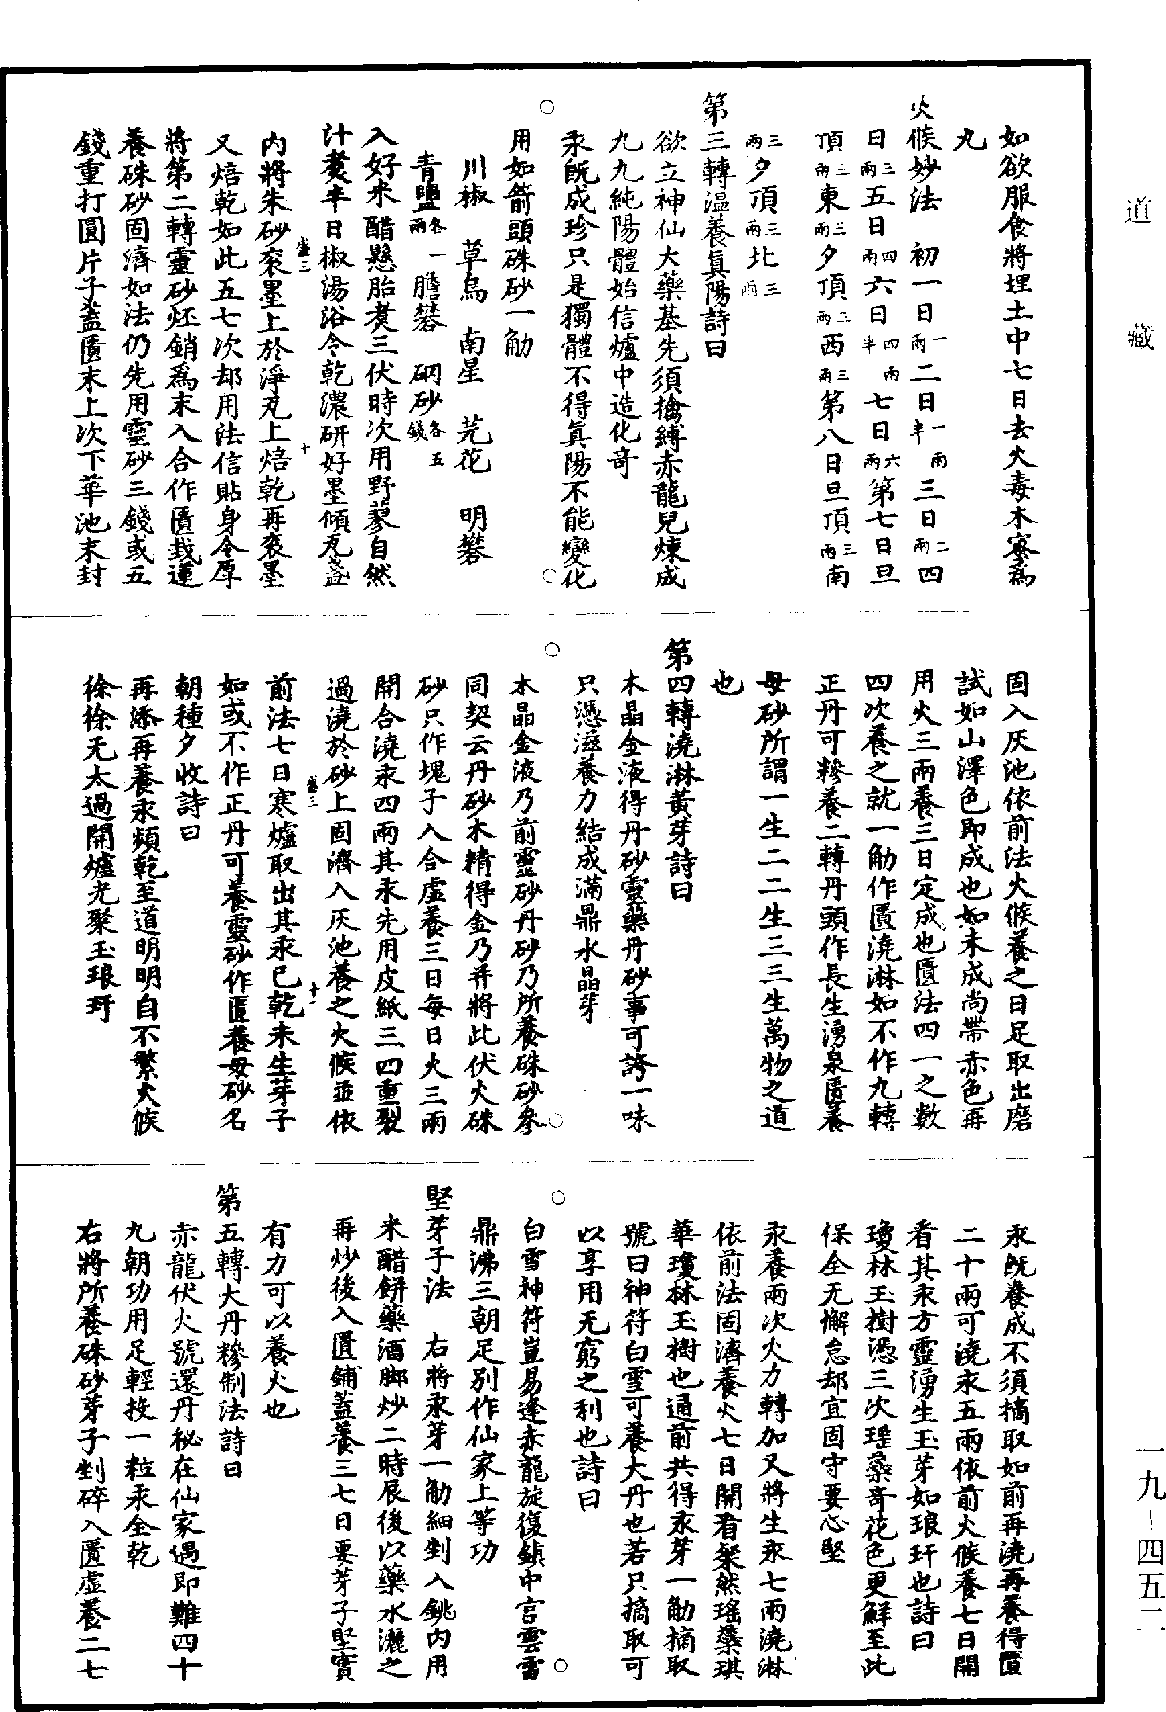 道藏
如欲服食將埋土中七日去火毒木蜜爲
丸
火候妙法　初一日一兩二日一兩半三日二兩四
日三兩五日四兩六日四兩半七日六兩第七日旦
頂三兩東三兩夕頂三兩西三兩第八日旦頂三兩南
三兩夕頂三兩北三兩
第三轉溫養眞陽詩曰
欲立神仙大藥基先須擒縛赤龍兒煉成
九九純陽體始信爐中造化奇
汞旣成珍只是獨體不得眞陽不能變化
用如箭頭硃砂一觔
川椒　草烏　南星　芫花　明礬
青鹽各一兩膽礬　硇砂各五錢
入好米醋懸胎煑三伏時次用野蓼自然
汁煑半日椒湯浴令乾濃研好墨傾瓦盞
盛三　十
內將朱砂衮墨上於淨瓦上焙乾再衮墨
又焙乾如此五七次却用法信貼身令厚
將第二轉靈砂坯銷爲末入合作匱栽蓮
養硃砂固濟如法仍先用靈砂三錢或五
錢重打圓片子蓋匱末上次下華池末封
固入灰池依前法火候養之日足取出磨
試如山澤色即成也如未成尚帶赤色再
用火三兩養三日定成也匱法四一之數
四次養之就一觔作匱澆淋如不作九轉
正丹可糝養二轉丹頭作長生湧泉匱養
母砂所謂一生二二生三三生萬物之道
也
第四轉澆淋黃芽詩曰
木晶金液得丹砂靈藥丹砂事可誇一味
只憑滋養力結成滿鼎水晶芽
木晶金液乃前靈砂丹砂乃所養硃砂參
同契云丹砂木精得金乃并將此伏火硃
砂只作塊子入合虛養三日每日火三兩
開合澆汞四兩其汞先用皮紙三四重裂
過澆於砂上固濟入灰池養之火候並依
盛三　十一
前法七日寒爐取出其汞已乾未生芽子
如或不作正丹可養靈砂作匱養母砂名
朝種夕收詩曰
再添再養汞頻乾至道明明自不繁火候
徐徐无太過開爐光聚玉琅玕
汞旣養成不須摘取如前再澆再養得匱
二十兩可澆汞五兩依前火候養七日開
看其汞方靈湧生玉芽如琅玕也詩曰
瓊林玉樹憑三次瑤蘂奇花色更鮮至此
保全无懈怠却宜固守要心堅
汞養兩次火力轉加又將生汞七兩澆淋
依前法固濟養火七日開看粲然瑤蘂琪
華瓊林玉樹也通前共得汞芽一觔摘取
號曰神符白雪可養大丹也若只摘取可
以享用无窮之利也詩曰
白雪神符豈易逢赤龍旋復鎮中宮雲雷
鼎沸三朝足別作仙家上等功
堅芽子法　右將汞芽一觔細剉入銚內用
米醋餅藥酒脚炒二時辰後以藥水灑之
再炒後入匱鋪蓋養三七日要芽子堅實
有力可以養火也
第五轉大丹糝制法詩曰
赤龍伏火號還丹秘在仙家遇即難四十
九朝功用足輕投一粒汞全乾
右將所養硃砂芽子剉碎入匱虛養二七
一九－四五二